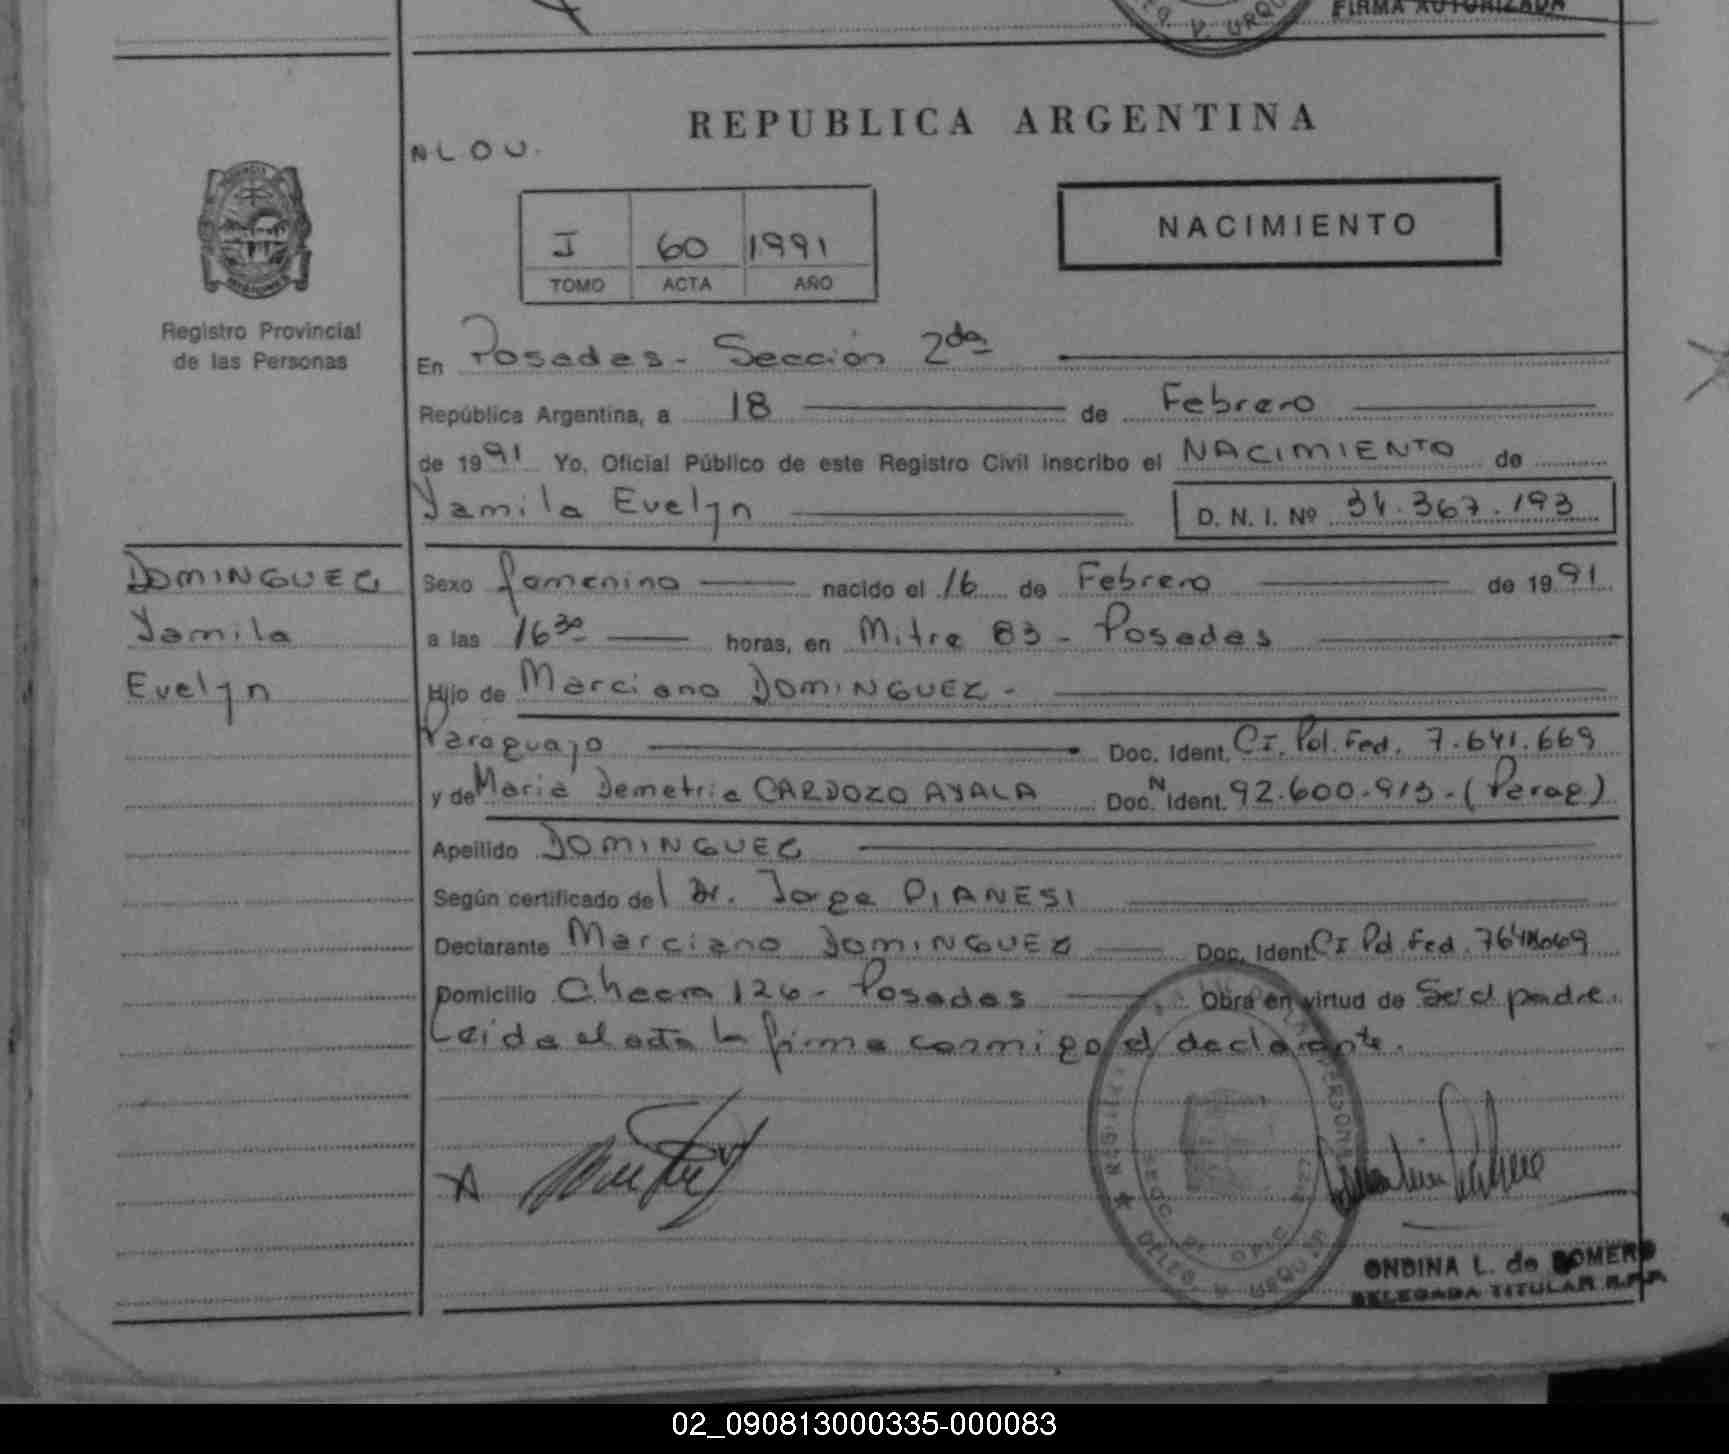 FIRMA AUTORIZADA
REPUBLICA ARGENTINA
N L O U.
I 60 1991
TOMO ACTA AÑO
NACIMIENTO
Registro Provincial
de las Personas
En Posadas - Sección 2da
República Argentina, a 18 de Febrero
de 1991 Yo, Oficial Público de este Registro Civil inscribo el NACIMIENTO de
Yamila Evelyn D. N. I. Nº 34.367.193
DOMINGUEZ
Yamila
Evelyn
Sexo femenino nacido el 16 de Febrero de 1991
a las 16 30 horas, en Mitre 83 - Posadas
Hijo de Marciano DOMINGUEZ -
Paraguayo Doc. Ident. CI. Pol. Fed. 7.641.669
y de Maria Demetria CARDOZO AYALA Doc. N Ident. 92.600.913 - (Parag)
Apellido DOMINGUEZ
Según certificado del Dr. Jorge PIANESI
Declarante Marciano DOMINGUEZ Doc. Ident. CI Pol Fed.
Domicilio Checra 126 - Posadas Obra en virtud de Ser el padre.
Leida el acta la firma conmigo el declarante.
ONDINA L. de ROMERO
DELEGADA TITULAR R.P.P.
02_090813000335-000083